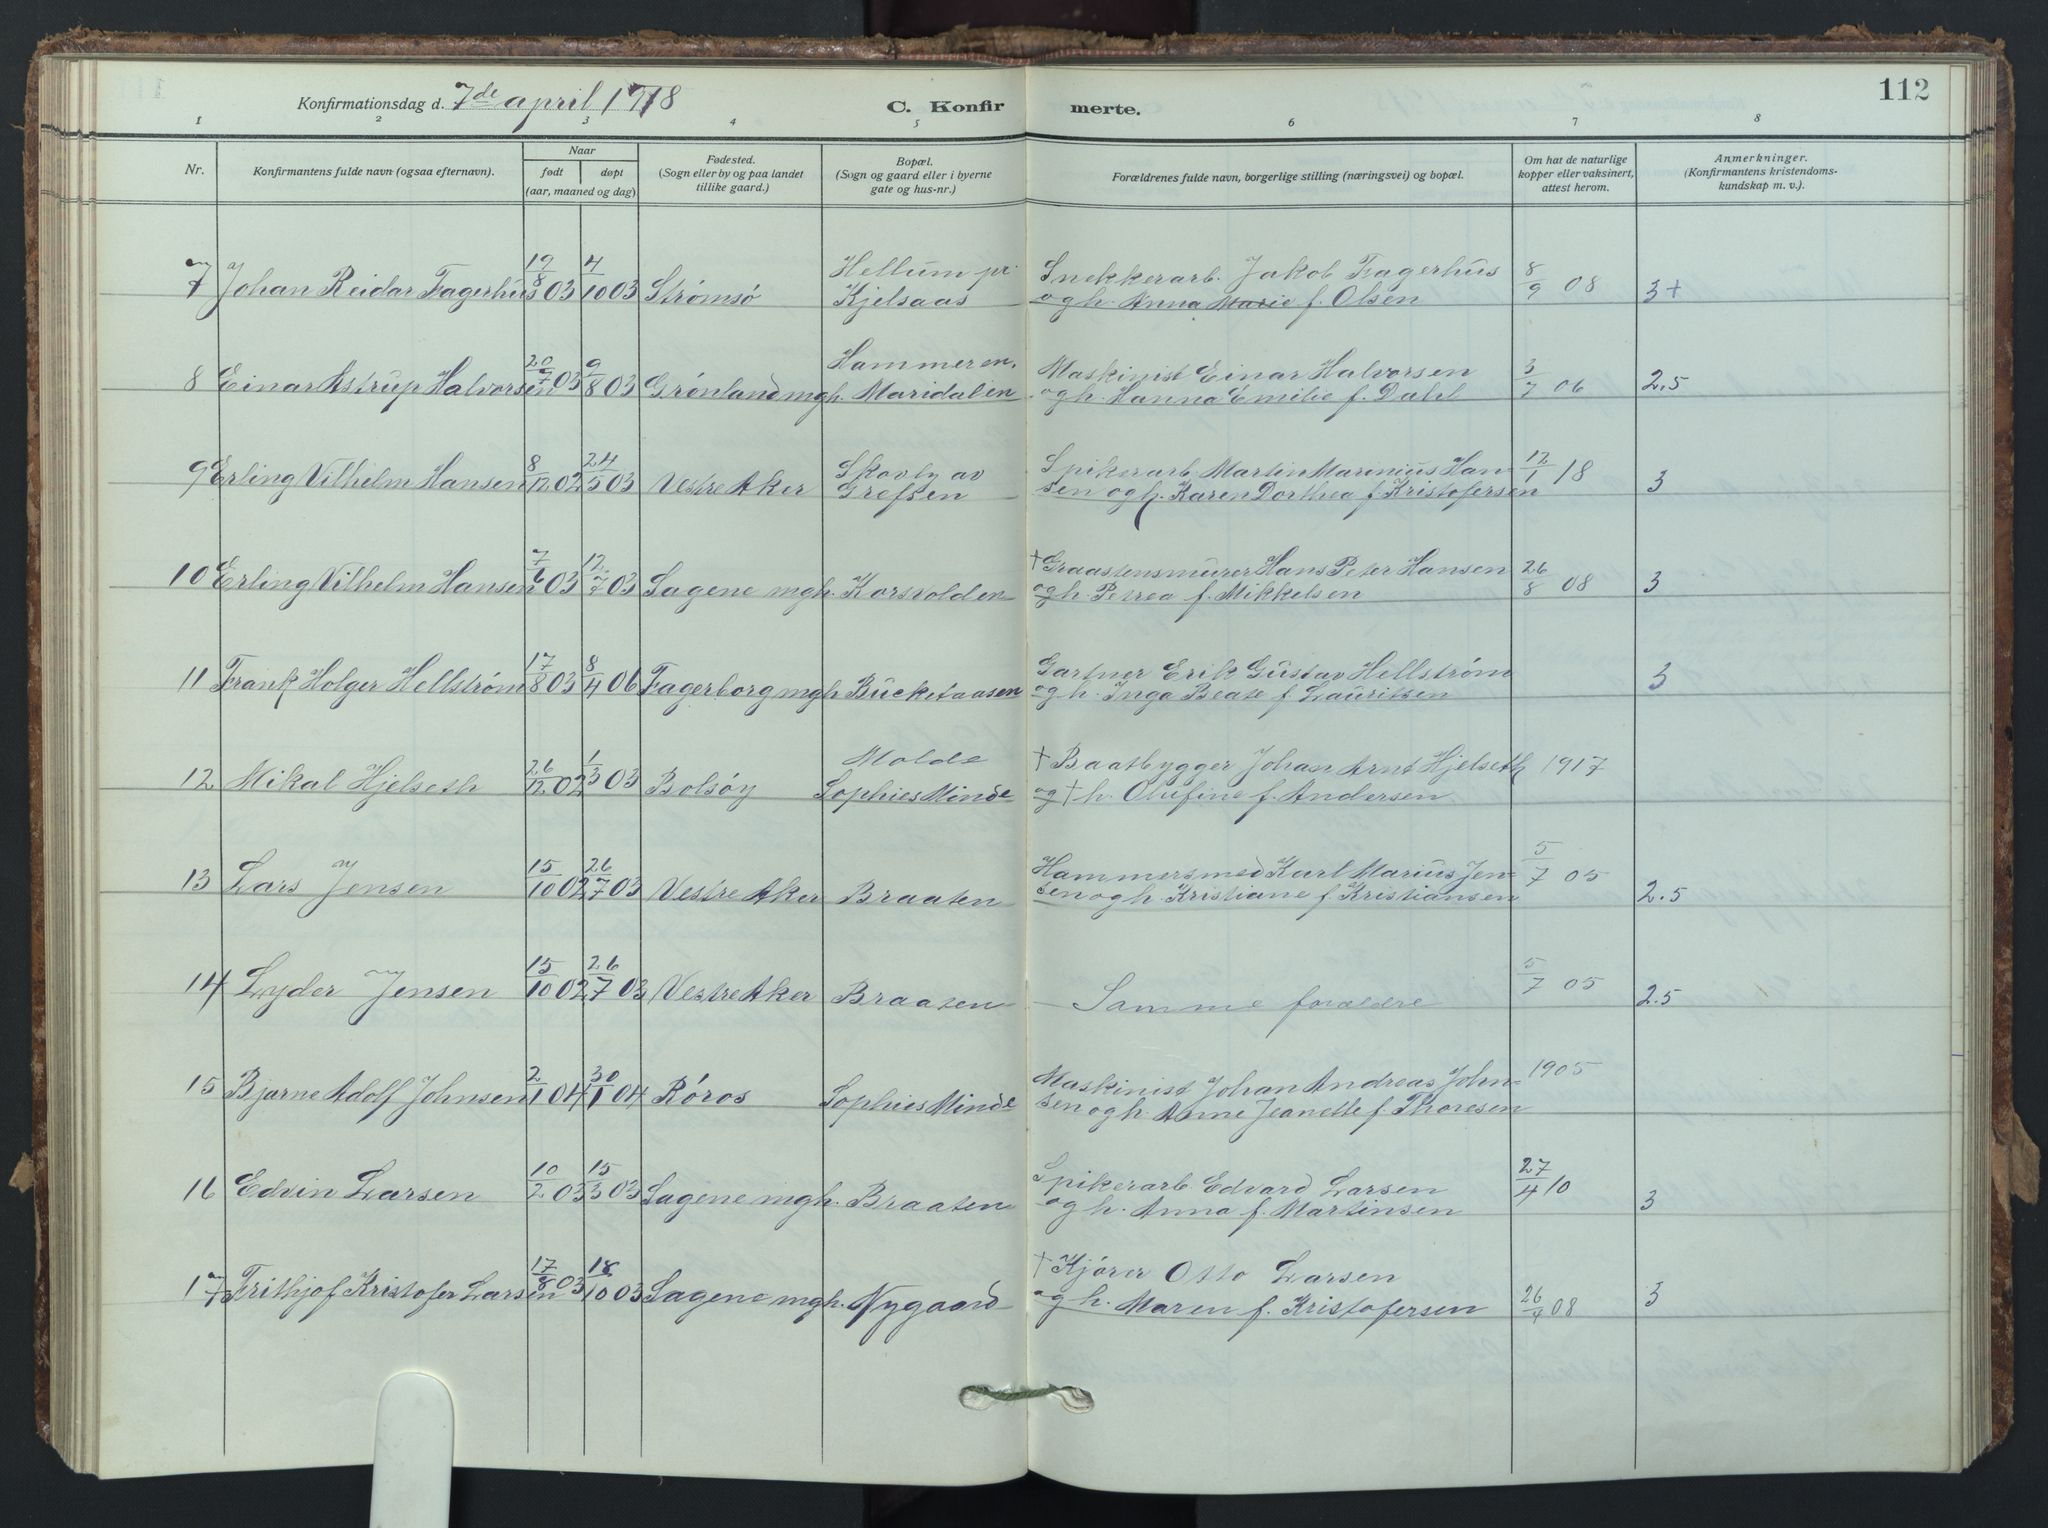 112
Konfirmationsdag d. 7de april 1918
C. Konfirmerte.
1 2 3 4 5 6 7 8
Nr.
Konfirmantens fulde navn (ogsaa efternavn).
Naar
født døpt
(aar, maaned og dag)
Fødested.
(Sogn eller by og paa landet
tillike gaard.)
Bopæl.
(Sogn og gaard eller i byerne
gate og hus-nr.)
Forældrenes fulde navn, borgerlige stilling (næringsvei) og bopæl.
Om hat de naturlige
kopper eller vaksinert,
attest herom.
Anmerkninger.
(Konfirmantens kristendoms-
kundskap m. v.)
7 Johan Reidar Fagerhus 19/8 03 4/10 03 Strømsø Hellum pr. Kjelsaas Snekkerarb. Jakob Fagerhus
og h. Anna Marie f. Olsen 8/9 08 3+
8 Einar Astrup Halvorsen 20/7 03 9/8 03 Grønland mgh. Hammeren, Maridalen Maskinist Einar Halvorsen
og h. Hanna Emilie f. Dahl 3/7 06 2.5
9 Erling Vilhelm Hansen 8/12 02 24/5 03 Vestre Aker Skovby av Grefsen Spikerarb. Martin Marinius Han-
sen og h. Karen Dorthea f. Kristofersen 12/1 18 3
10 Erling Vilhelm Hansen 7/6 03 12/7 03 Sagene mgh. Korsvolden † Graastensmurer Hans Peter Hansen
og h. Petrea f. Mikkelsen 26/8 08 3
11 Frank Holger Hellstrøm 17/8 03 8/4 06 Fagerborg mgh Bücketaasen Gartner Erik Gustav Hellstrøm
og h. Inga Beate f. Lauritsen 3
12 Mikal Hjelseth 26/12 02 1/3 03 Bolsøy Molde Sophies Minde † Baatbygger Johan Arnt Hjelseth
og † h. Olufine f. Andersen 1917
13 Lars Jensen 15/10 02 26/7 03 Vestre Aker Braaten Hammersmed Karl Marius Jen-
sen og h. Kristiane f. Kristiansen 5/7 05 2.5
14 Lyder Jensen 15/10 02 26/7 03 Vestre Aker Braaten Samme forældre 5/7 05 2.5
15 Bjarne Adolf Johnsen 2/1 04 30/1 04 Røros Sophies Minde Maskinist Johan Andreas John-
sen og h. Anne Jeanette f. Thoresen 1905
16 Edvin Larsen 10/2 03 15/3 03 Sagene mgh. Braaten Spikerarb. Edvard Larsen
og h. Anna f. Martinsen 27/4 10 3
17 Frithjof Kristofer Larsen 17/8 03 18/10 03 Sagene mgh. Nygaard † Kjører Otto Larsen
og h. Maren f. Kristofersen 26/9 08 3